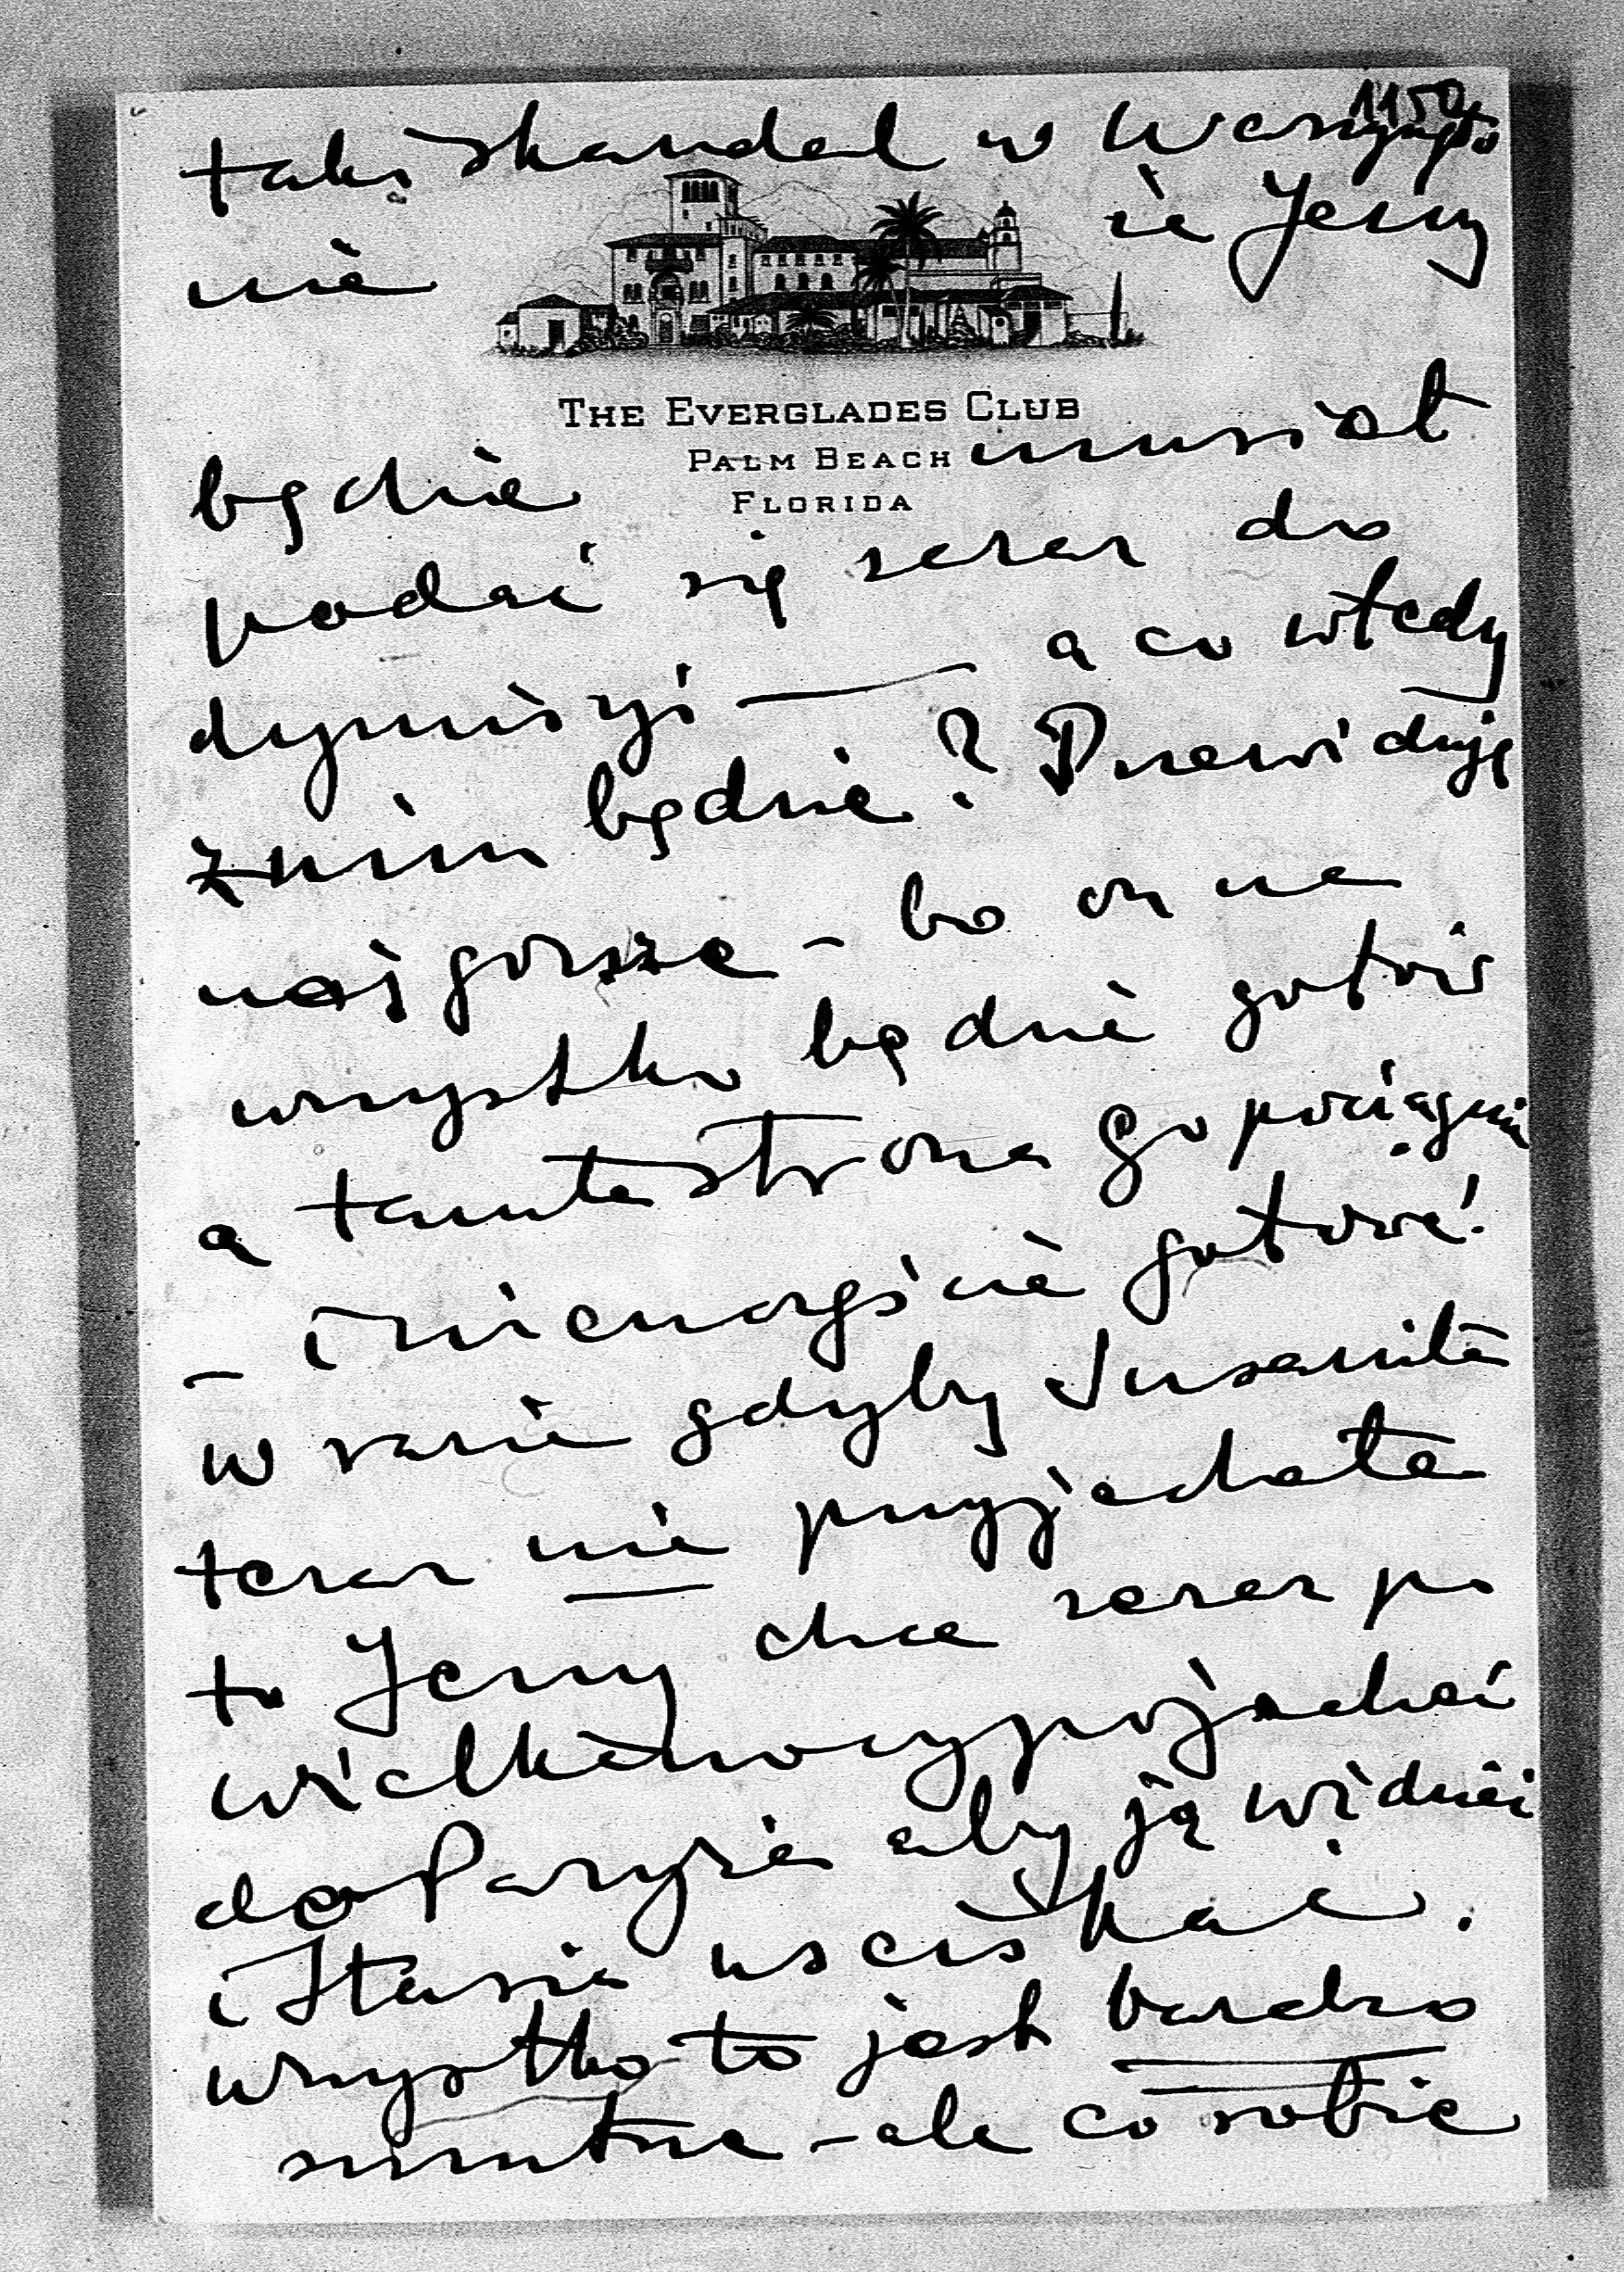 1150
taki skandal w Waszyngto
nie że Jerzy
THE EVERGLADES CLUB
PALM BEACH
FLORIDA
będzie musiał
podać się zaraz do
dymisyi — a co wtedy
z nim będzie? Przewiduję
najgorsze – bo on na
wszystko będzie gotów
a tamta strona go pociągnie
– i nienajśnie gotowe!
w razie gdyby Susanita
teraz nie przyjechała
to Jerzy chce zaraz po
wielkiejnocy pojechać
do Paryża aby ją widzieć
i Stasia uściskać.
wszystko to jest bardzo
smutne – ale co robić